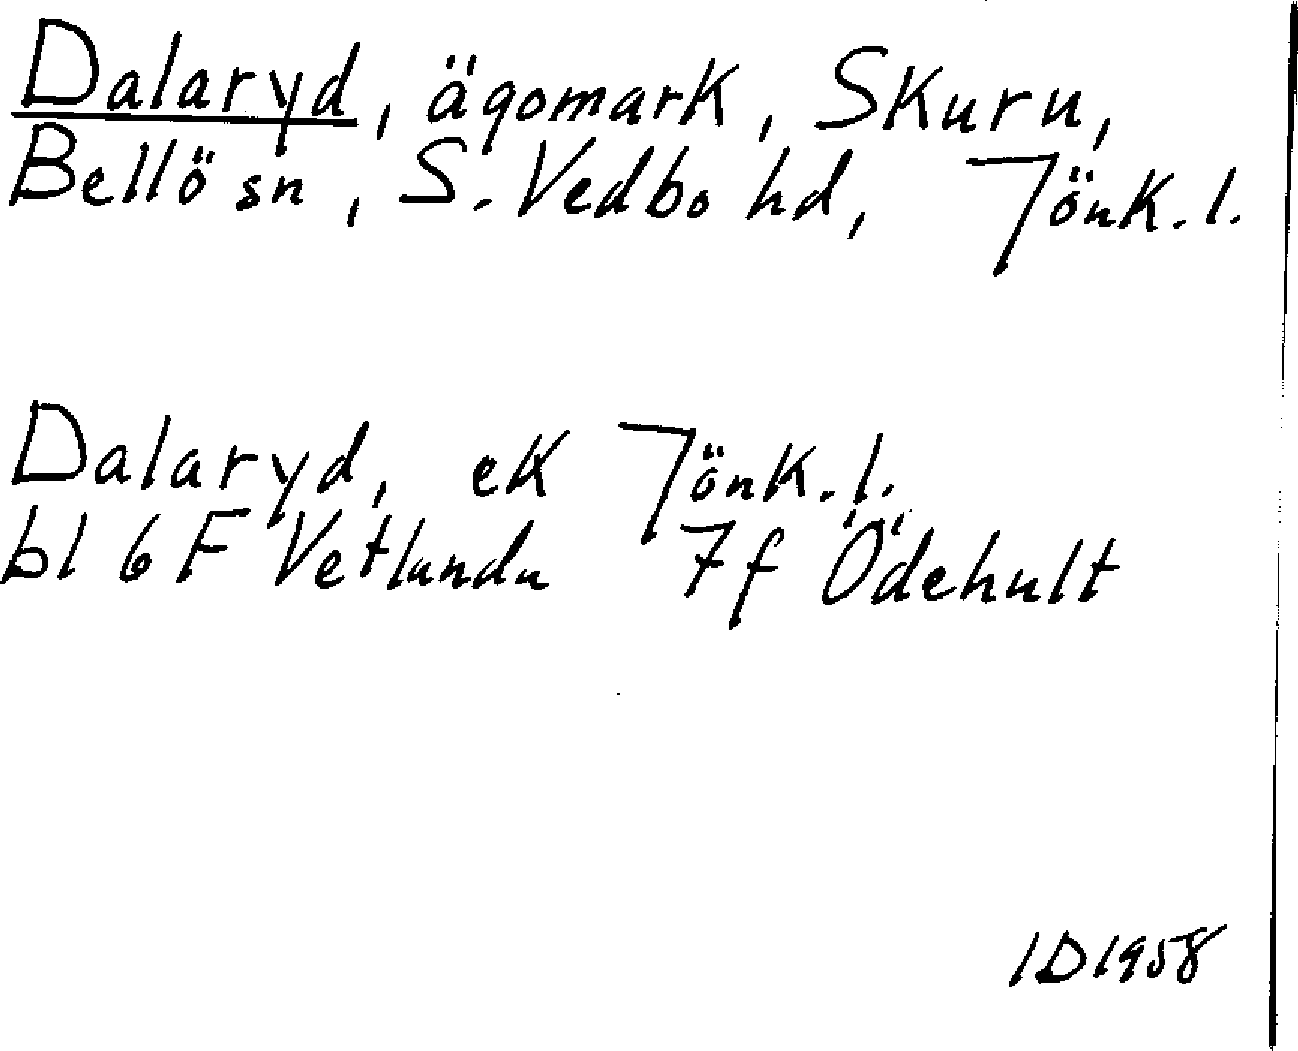 Dalaryd, ägomark, Skuru,
Bellö sn, S. Vedbo hd, Jönk. l.
Dalaryd, ek Jönk. l.
bl 6 F Vetlanda 7f Ödehult
ID 1958